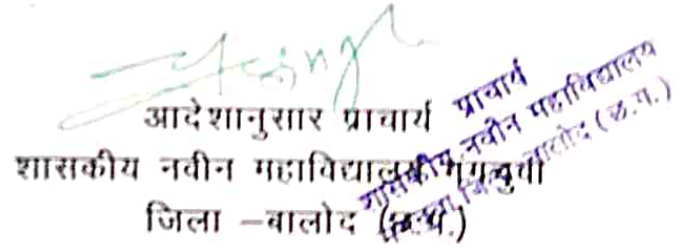 आदेशानुसार प्राचार्य
शासकीय नवीन महाविद्यालय
जिला –बालोद (छ.ग.)
प्राचार्य
शासकीय नवीन महाविद्यालय
जिला बालोद (छ.ग.)